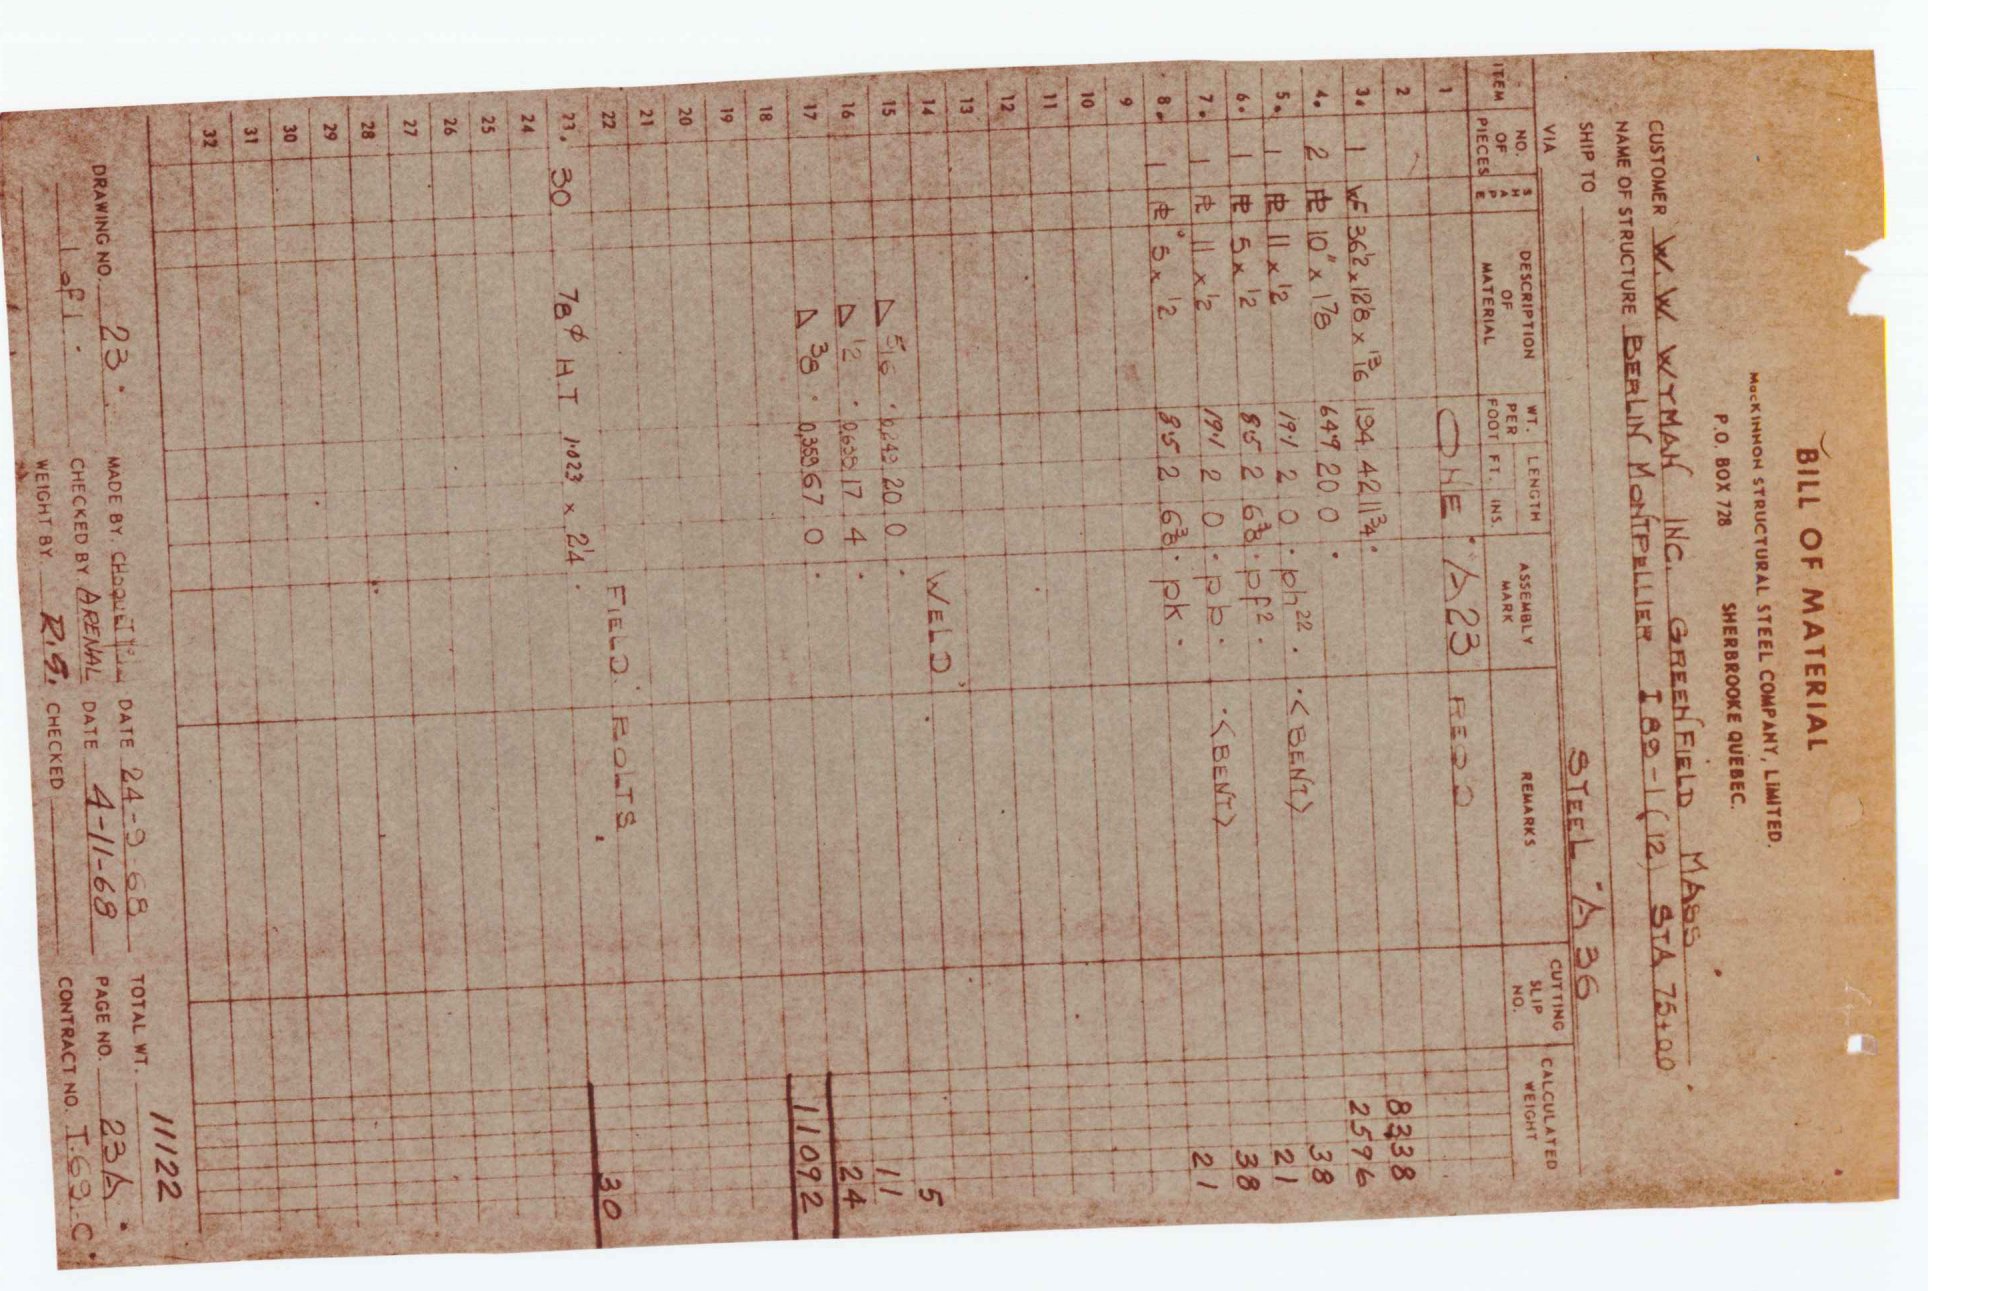 BILL OF MATERIAL
MacKINNON STRUCTURAL STEEL COMPANY, LIMITED.
P.O. BOX 728 SHERBROOKE QUEBEC.
CUSTOMER W. W. WYMAN INC. GREENFIELD MASS
NAME OF STRUCTURE BERLIN MONTPELLIER I 89-1 (12) STA 75+00
SHIP TO
VIA STEEL A 36
ITEM NO. OF PIECES SHAPE DESCRIPTION OF MATERIAL WT. PER FOOT LENGTH FT. INS. ASSEMBLY MARK REMARKS CUTTING SLIP NO. CALCULATED WEIGHT
1 ONE A23 REQD
2
3. 1 WF 36 1/2 x 12 1/8 x 13/16 194 42 11 3/4 8338
4. 2 PL 10" x 1 7/8 649 20 0 2596
5. 1 PL 11 x 1/2 191 2 0 ph22 <BENT> 38
6. 1 PL 5 x 1/2 85 2 6 3/8 pf2 21
7. 1 PL 11 x 1/2 191 2 0 pp <BENT> 38
8. 1 PL 5 x 1/2 85 2 6 3/8 pk 21
9
10
11
12
13
14 WELD
15 5/16 20 0 5
16 1/2 17 4 11
17 3/8 67 0 24
11092
18
19
20
21
22 FIELD BOLTS
23. 30 7/8 φ HT 1.023 x 2 1/4 30
24
25
26
27
28
29
30
31
32
11122
DRAWING NO. 23 MADE BY DATE 24-9-68 TOTAL WT.
1 of 1 CHECKED BY ARENAL DATE 4-11-68 PAGE NO. 23A
WEIGHT BY R.G. CHECKED CONTRACT NO. T.69.C